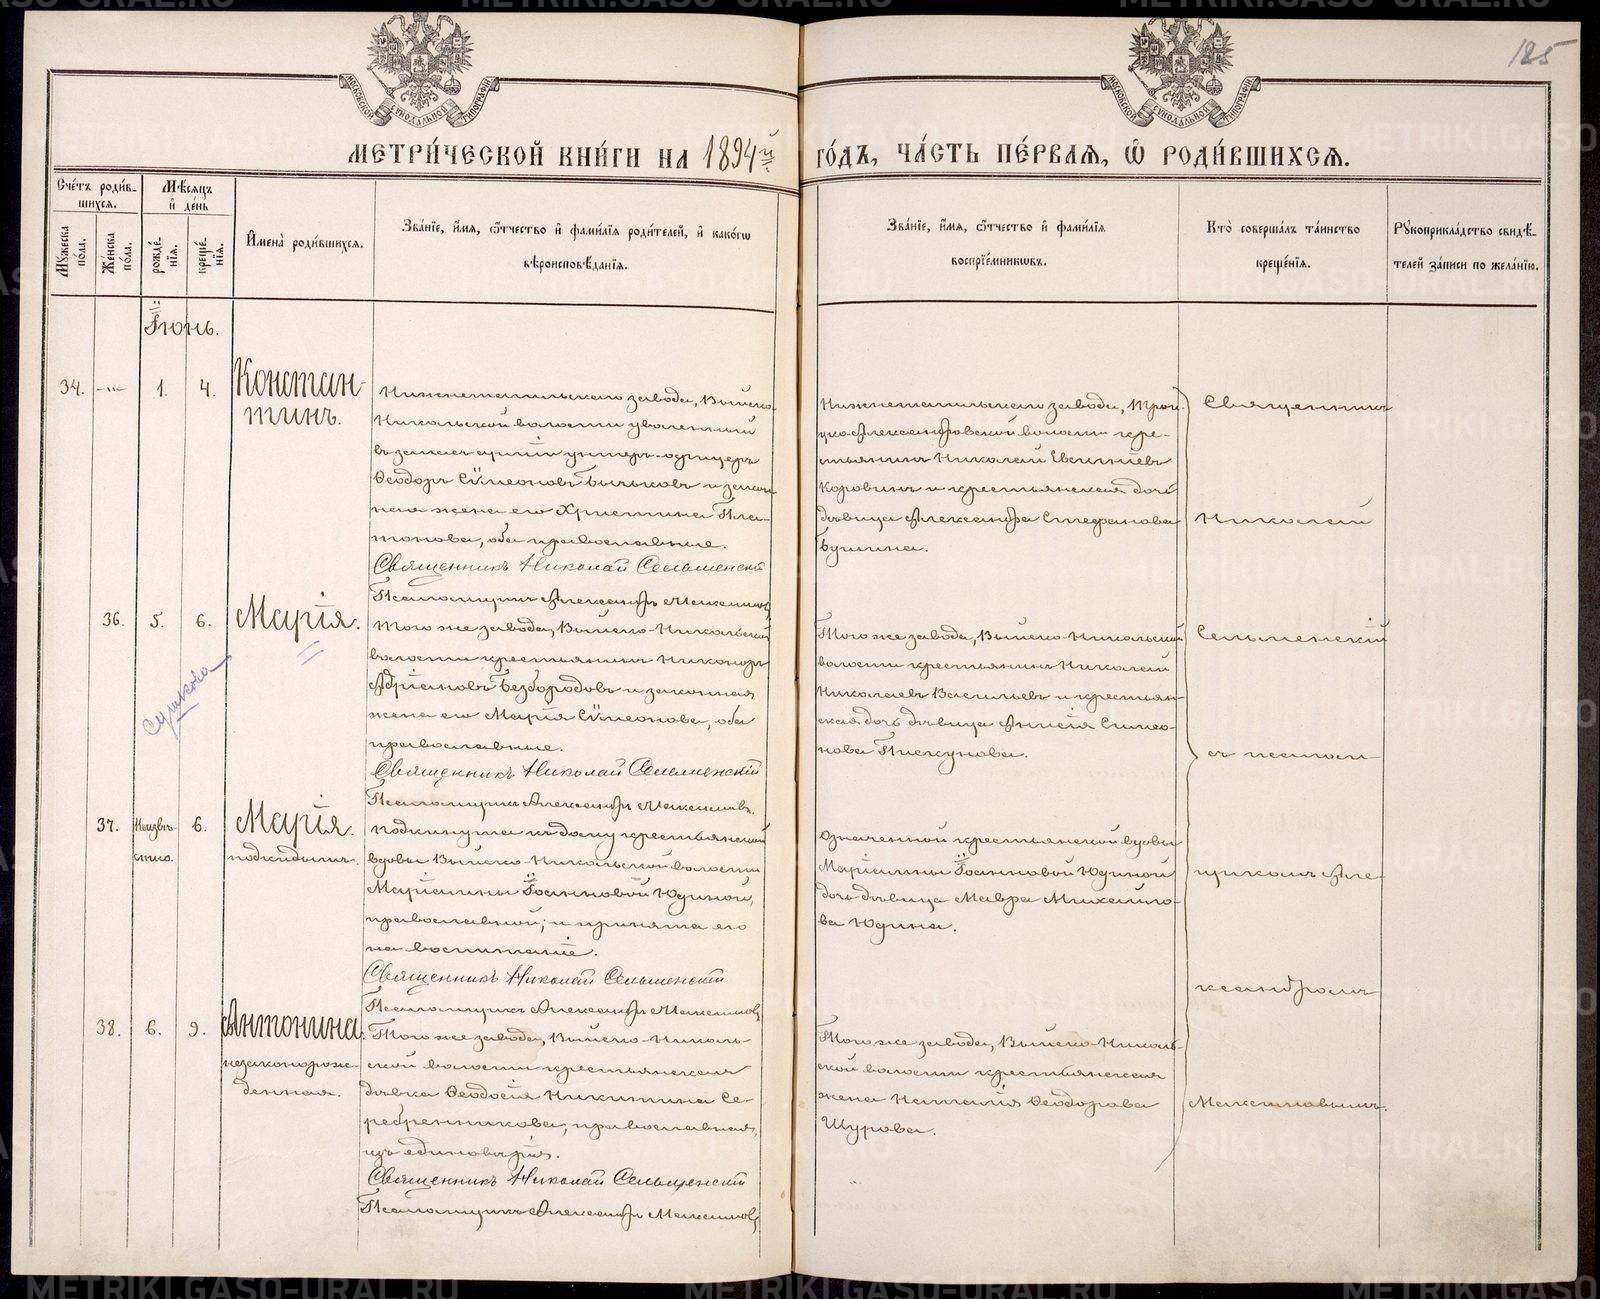 185
МЕТРИ́ЧЕСКОЙ КНИ́ГИ НА 1894й ГО́ДЪ, ЧА́СТЬ ПЕ́РВАЯ, Ѿ РОДИ́ВШИХСЯ.
Сче́тъ роди́в-
шихся.
Мѣ́сяцъ
и де́нь
Мꙋ́жеска
по́ла.
Же́нска
по́ла.
рожде́-
нїя.
креще́-
нїя.
И҆мена̀ роди́вшихся.
Зва́нїе, и҆́мя, ѻ҆́тчество и҆ фами́лїя роди́телей, и҆ како́гѡ
вѣроисповѣ́данїя.
Зва́нїе, и҆́мя, ѻ҆́тчество и҆ фами́лїя
воспрїе́мникѡвъ.
Кто̀ соверша́лъ та́инство
креще́нїя.
Рꙋкоприкла́дство свидѣ́-
телей за́писи по жела́нїю.
Іюнь.
34.
1.
4.
Констан-
тинъ.
Нижнетагильскаго завода, Выйско-
Никольской волости уволенный
въ запас арміи унтеръ-офицеръ
Ѳеодоръ Сѵмеоновъ Бычковъ и закон-
ная жена его Христина Пла-
тонова, оба православные.
Священникъ Николай Сельменскій
Псаломщикъ Александръ Максимовъ
Нижнетагильскаго завода, Трои-
цко-Александровской волости кре-
стьянинъ Николай Евгеніевъ
Коровинъ и крестьянская дочь
дѣвица Александра Стефанова
Бушина.
36.
5.
6.
Марія.
Сушкова
Того же завода, Выйско-Никольской
волости крестьянинъ Никоноръ
Адріановъ Безбородовъ и законная
жена его Марія Сѵмеонова, оба
православные.
Священникъ Николай Сельменскій
Псаломщикъ Александръ Максимовъ.
Того же завода, Выйско-Никольской
волости крестьянинъ Николай
Николаевъ Васильевъ и крестьян-
ская дочь дѣвица Анисія Симео-
нова Пискунова.
37.
Неизвѣ-
стно.
6.
Марія.
подкидышъ.
подкинута къ дому крестьянской
вдовы Выйско-Никольской волости
Маріамны Іоанновой Юдиной,
православной; и принята ею
на воспитаніе.
Священникъ Николай Сельменскій
Псаломщикъ Александръ Максимовъ
означенной крестьянской вдовы
Маріамны Іоанновой Юдиной
дочь дѣвица Мавра Михайло-
ва Юдина.
38.
6.
9.
Антонина.
незаконорож-
денная.
Того же завода, Выйско-Николь-
ской волости крестьянская
дѣвка Ѳеодосія Никитина Се-
ребренникова, православная,
изъ единовѣрія.
Священникъ Николай Сельменскій
Псаломщикъ Александръ Максимовъ
Того же завода, Выйско-Николь-
ской волости крестьянская
жена Наталія Ѳеодорова
Шурова.
Священникъ
Николай
Сельменскій
съ псалом-
щикомъ Але-
ксандромъ
Максимовымъ.